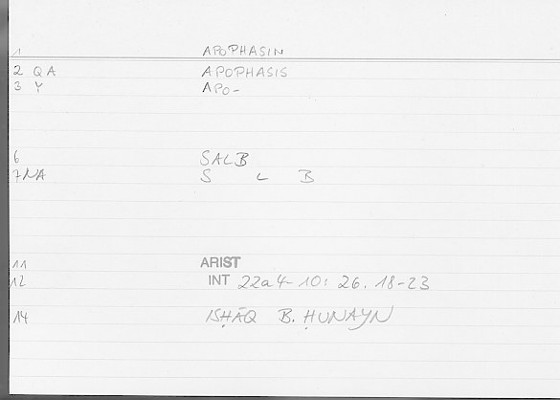 1 APOPHASIN
2 QA APOPHASIS
3 Y APO-
6 SALB
7 NA S L B
11 ARIST
12 INT 22a4-10: 26.18-23
14 ISḤĀQ B. ḤUNAYN